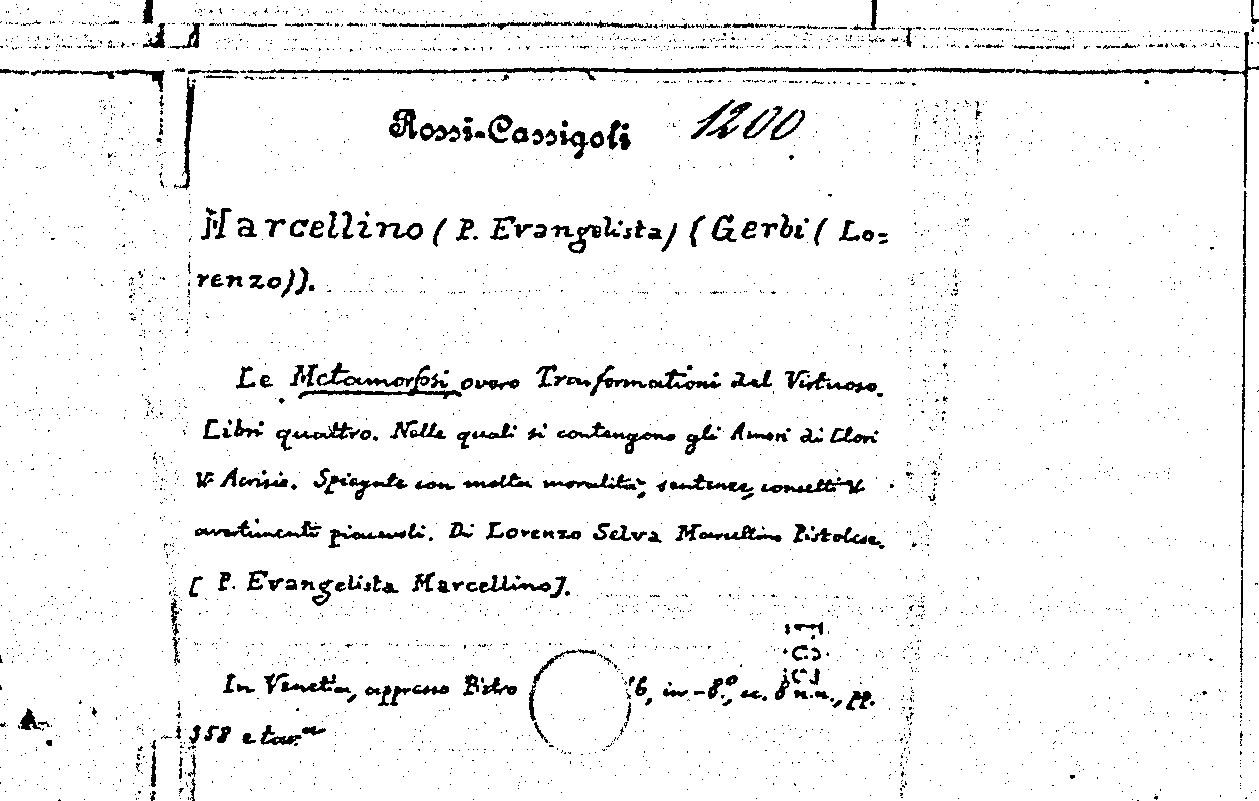 Rossi-Cassigoli 1200
Marcellino (P. Evangelista) (Gerbi (Lo=
renzo)).
Le Metamorfosi overo Trasformationi del Virtuoso.
Libri quattro. Nelle quali si contengono gli Amori di Clori
& Acrisio. Spiegate con molta moralità, sentenze, concetti &
avertimenti piacevoli. Di Lorenzo Selva Marcellino Pistolese.
[P. Evangelista Marcellino].
In Venetia, appresso Pietro 6, in-8.º, cc. 8 n.n., pp.
358 e tav.ª